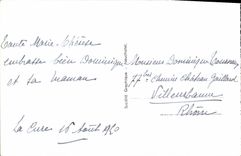 Tante Marie-Thérèse
embrasse bien Dominique
et sa maman
La Cure 16 Août 1950
Monsieur Dominique
77 bis Chemin Château Gaillard
Villeurbanne
Rhône